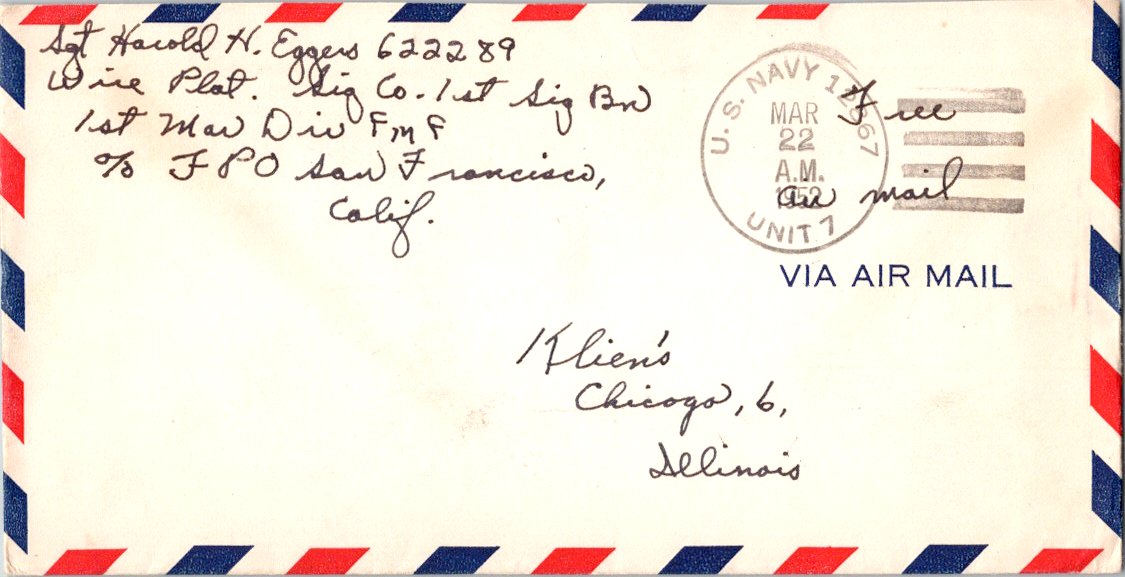 Sgt Harold H. Eggers 622289
Wire Plat. Sig Co. 1st Sig Bn
1st Mar Div FMF
c/o FPO San Francisco,
Calif.
U.S. NAVY 12867
MAR
22
A.M.
1952
UNIT 1
Free
air mail
VIA AIR MAIL
Klien's
Chicago, 6,
Illinois